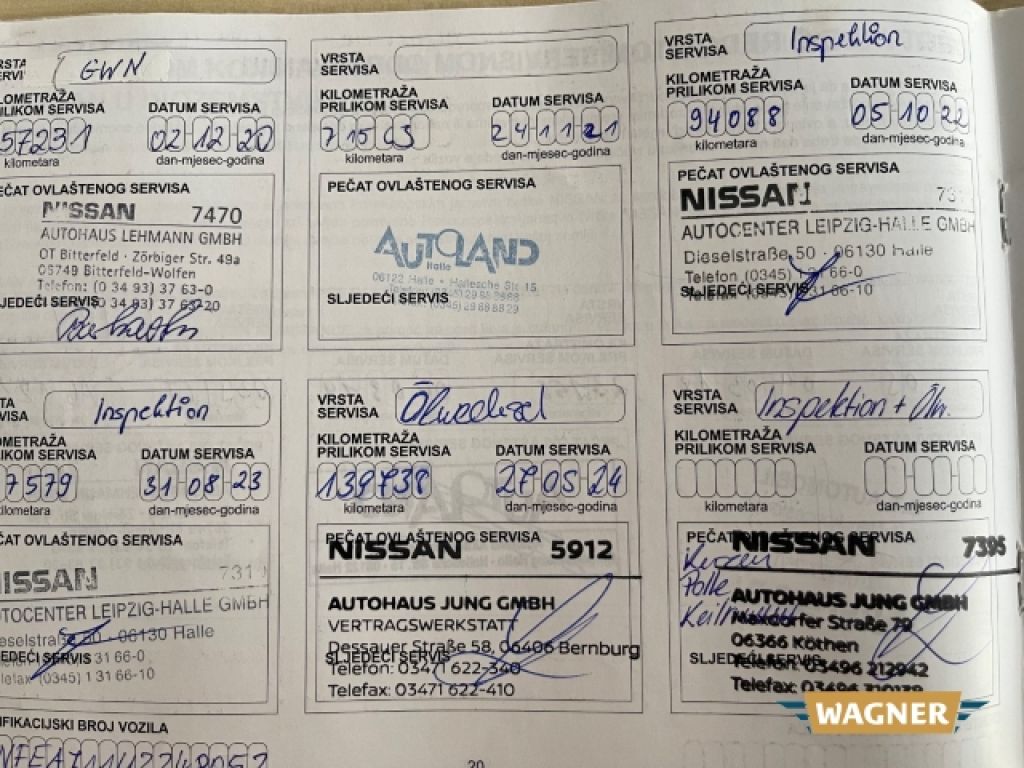 VRSTA
SERVISA
GWN
KILOMETRAŽA
PRILIKOM SERVISA
DATUM SERVISA
57231
02-12-20
kilometara
dan-mjesec-godina
PEČAT OVLAŠTENOG SERVISA
NISSAN 7470
AUTOHAUS LEHMANN GMBH
OT Bitterfeld · Zörbiger Str. 49a
06749 Bitterfeld-Wolfen
Telefon: (0 34 93) 37 63-0
SLJEDEĆI SERVIS 0 34 93) 37 63-20
VRSTA
SERVISA
KILOMETRAŽA
PRILIKOM SERVISA
DATUM SERVISA
24 11 21
kilometara
dan-mjesec-godina
PEČAT OVLAŠTENOG SERVISA
AUTOLAND
Halle
06122 Halle · Hallesche Str. 15
SLJEDEĆI SERVIS
VRSTA
SERVISA
Inspektion
KILOMETRAŽA
PRILIKOM SERVISA
DATUM SERVISA
94088
05-10-22
kilometara
dan-mjesec-godina
PEČAT OVLAŠTENOG SERVISA
NISSAN
AUTOCENTER LEIPZIG-HALLE GMBH
Dieselstraße 50 · 06130 Halle
Telefon (0345) 1 31 66-0
SLJEDEĆI SERVIS
Telefax (0345) 1 31 66-10
Inspektion
KILOMETRAŽA
PRILIKOM SERVISA
DATUM SERVISA
7579
31-08-23
kilometara
dan-mjesec-godina
PEČAT OVLAŠTENOG SERVISA
NISSAN
AUTOCENTER LEIPZIG-HALLE GMBH
Dieselstraße 50 · 06130 Halle
SLJEDEĆI SERVIS 31 66-0
Telefax (0345) 1 31 66-10
VRSTA
SERVISA
Ölwechsel
KILOMETRAŽA
PRILIKOM SERVISA
DATUM SERVISA
139738
27-05-24
kilometara
dan-mjesec-godina
PEČAT OVLAŠTENOG SERVISA
NISSAN 5912
AUTOHAUS JUNG GMBH
VERTRAGSWERKSTATT
Dessauer Straße 58, 06406 Bernburg
SLJEDEĆI SERVIS
Telefon: 03471 622-340
Telefax: 03471 622-410
VRSTA
SERVISA
Inspektion + Ölw.
KILOMETRAŽA
PRILIKOM SERVISA
DATUM SERVISA
kilometara
dan-mjesec-godina
PEČAT OVLAŠTENOG SERVISA
NISSAN 7395
Kerzen
Polle
AUTOHAUS JUNG GMBH
Maxdorfer Straße 79
06366 Köthen
SLJEDEĆI SERVIS
Telefon: 03496 212942
IFIKACIJSKI BROJ VOZILA
20
WAGNER